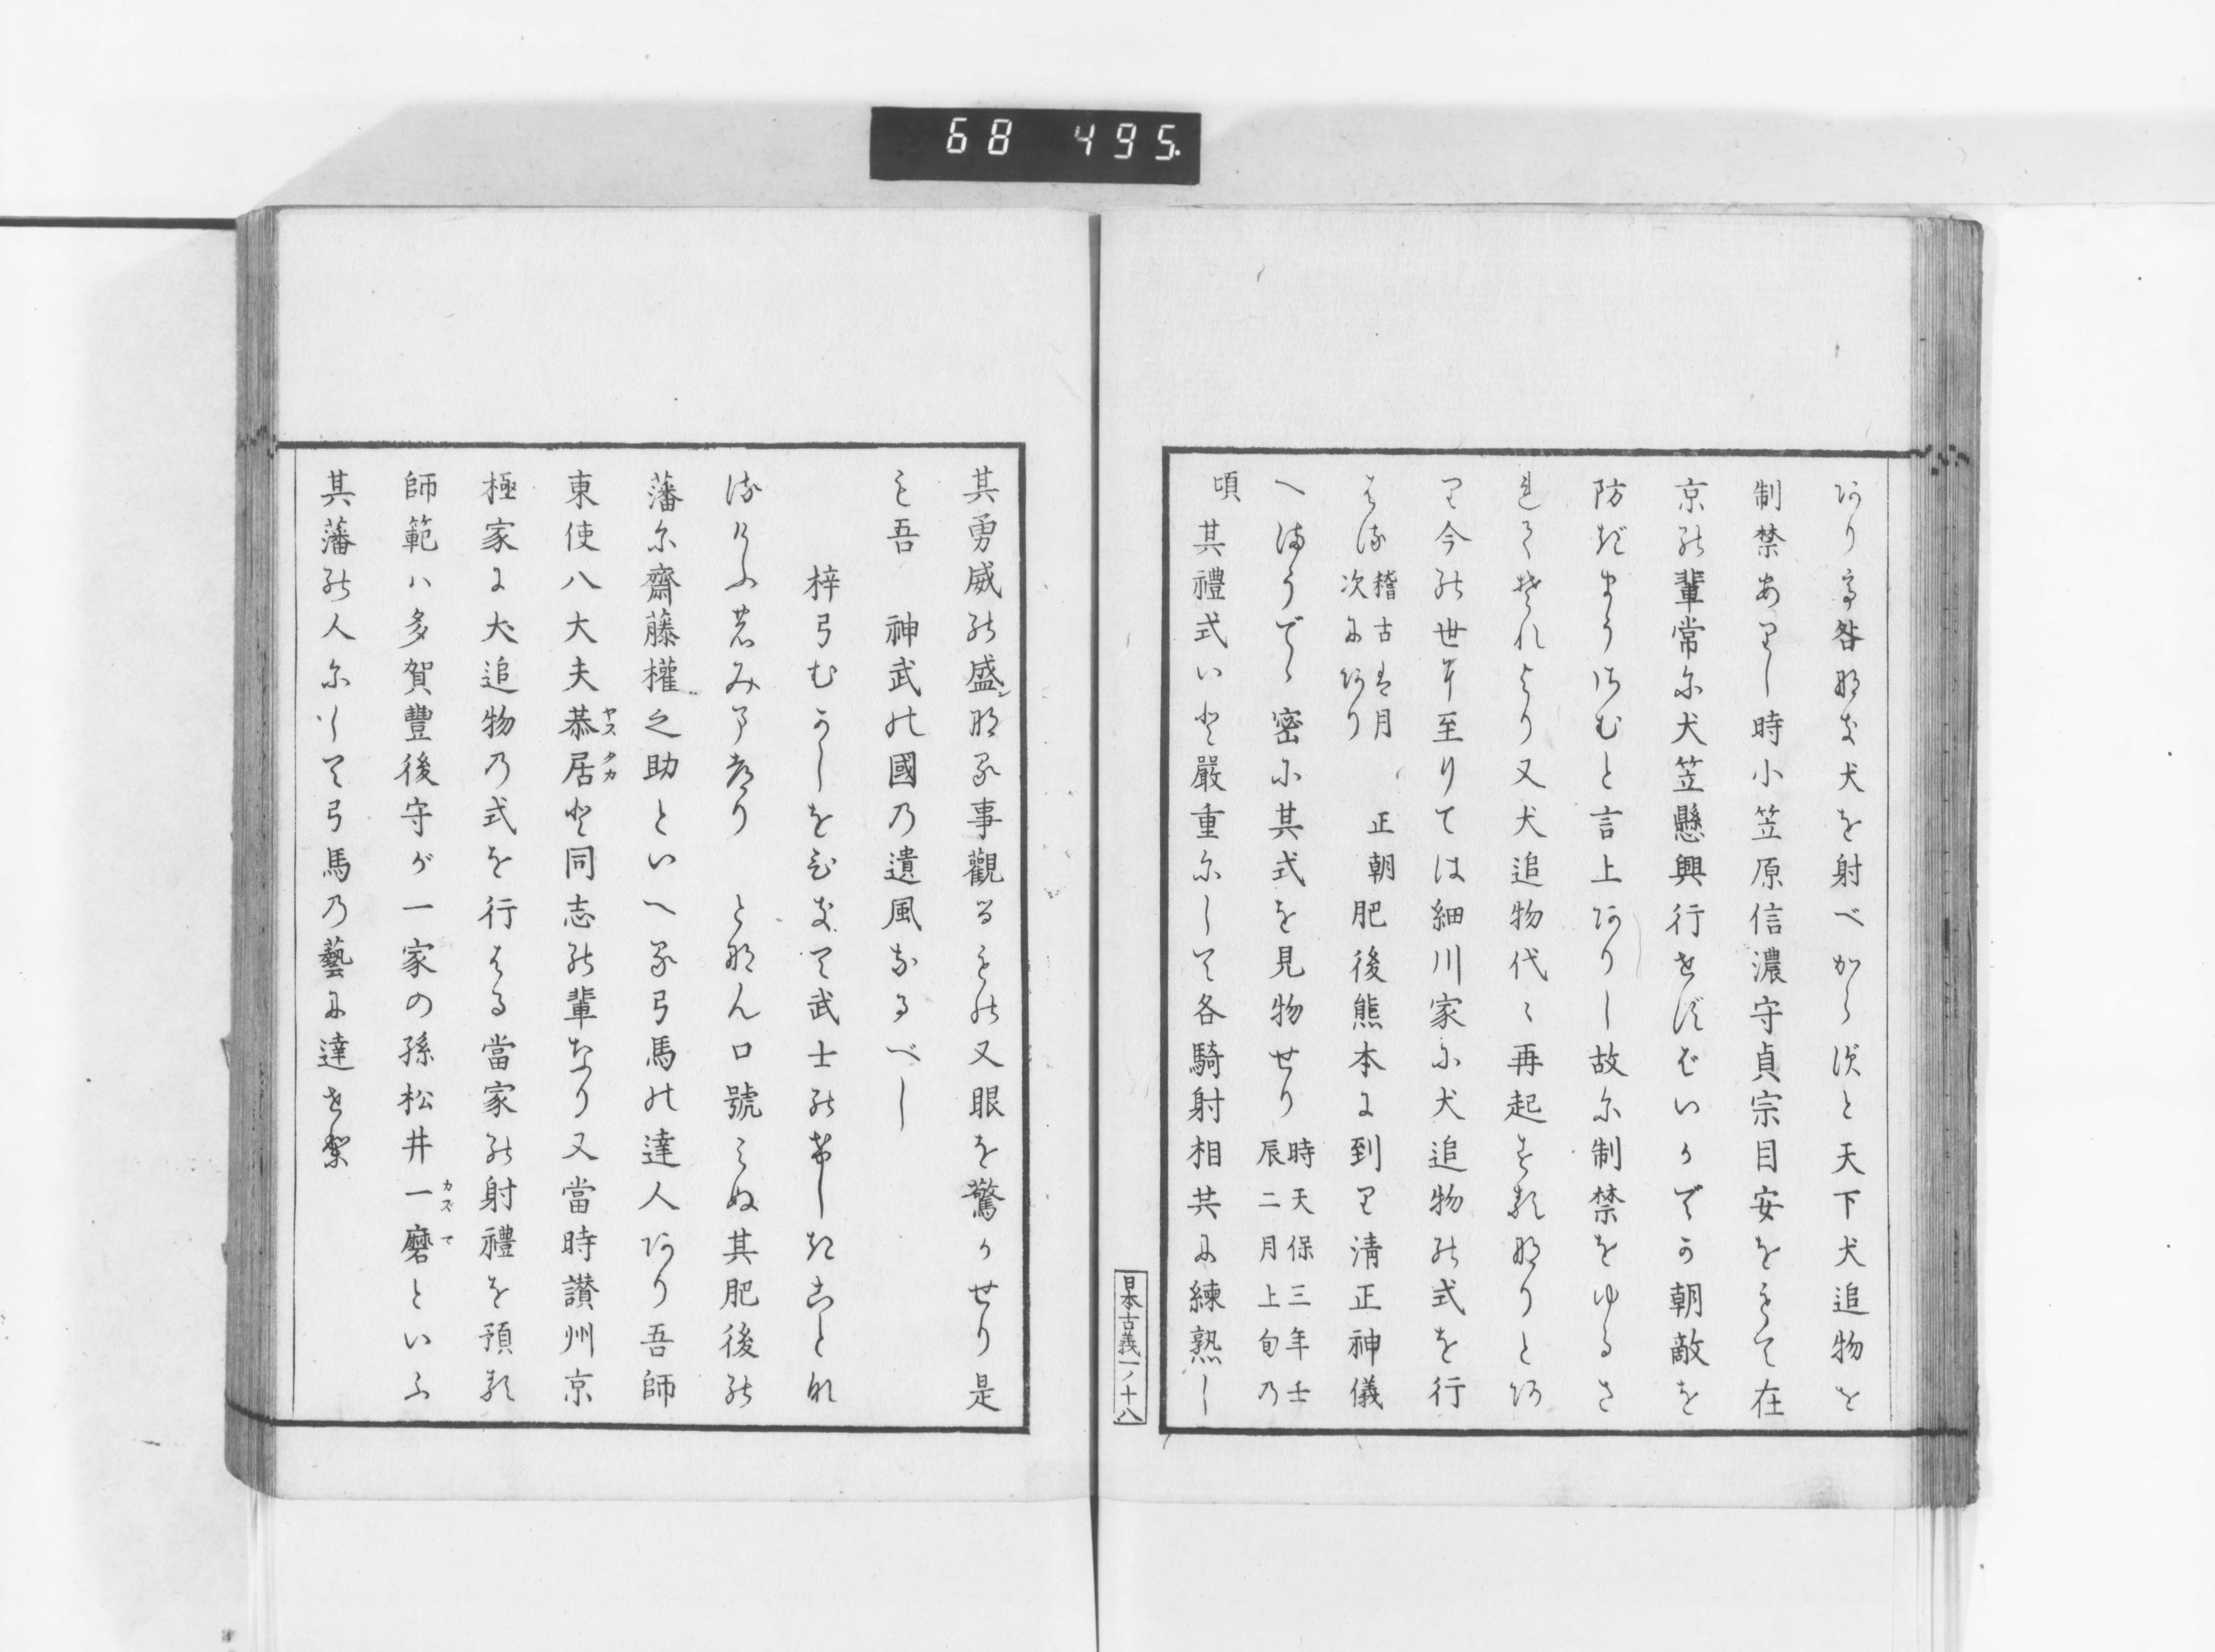 68 495.
あり專咎那き犬を射べからずと天下犬追物を
制禁ありし時小笠原信濃守貞宗目安をもて在
京の輩常に犬笠懸興行せずばいかでか朝敵を
防ぎまうさむと言上ありし故に制禁をゆるさ
れてそれより又犬追物代〻再起する那りとあ
り今の世に至りては細川家に犬追物の式を行
はる稽古は月次にあり 正朝肥後熊本に到り清正神儀
へまうでゝ密に其式を見物せり時天保三年壬辰二月上旬乃
頃其禮式いと嚴重にして各騎射相共に練熟し
日本古義一ノ十八
其勇威の盛ン那る事觀るもの又眼を驚かせり是
も吾 神武の國乃遺風なるべし
梓弓むかしを忍びて武士の劣しきあとれ
はげふ君みつ都り となん口號みぬ其肥後の
藩に齋藤權之助といへる弓馬の達人あり吾師
東使八大夫恭居ヤスタカと同志の輩なり又當時讃州京
極家に犬追物乃式を行はる當家の射禮を預る
師範ハ多賀豐後守が一家の孫松井一磨カズマといふ
其藩の人にして弓馬乃藝に達せり